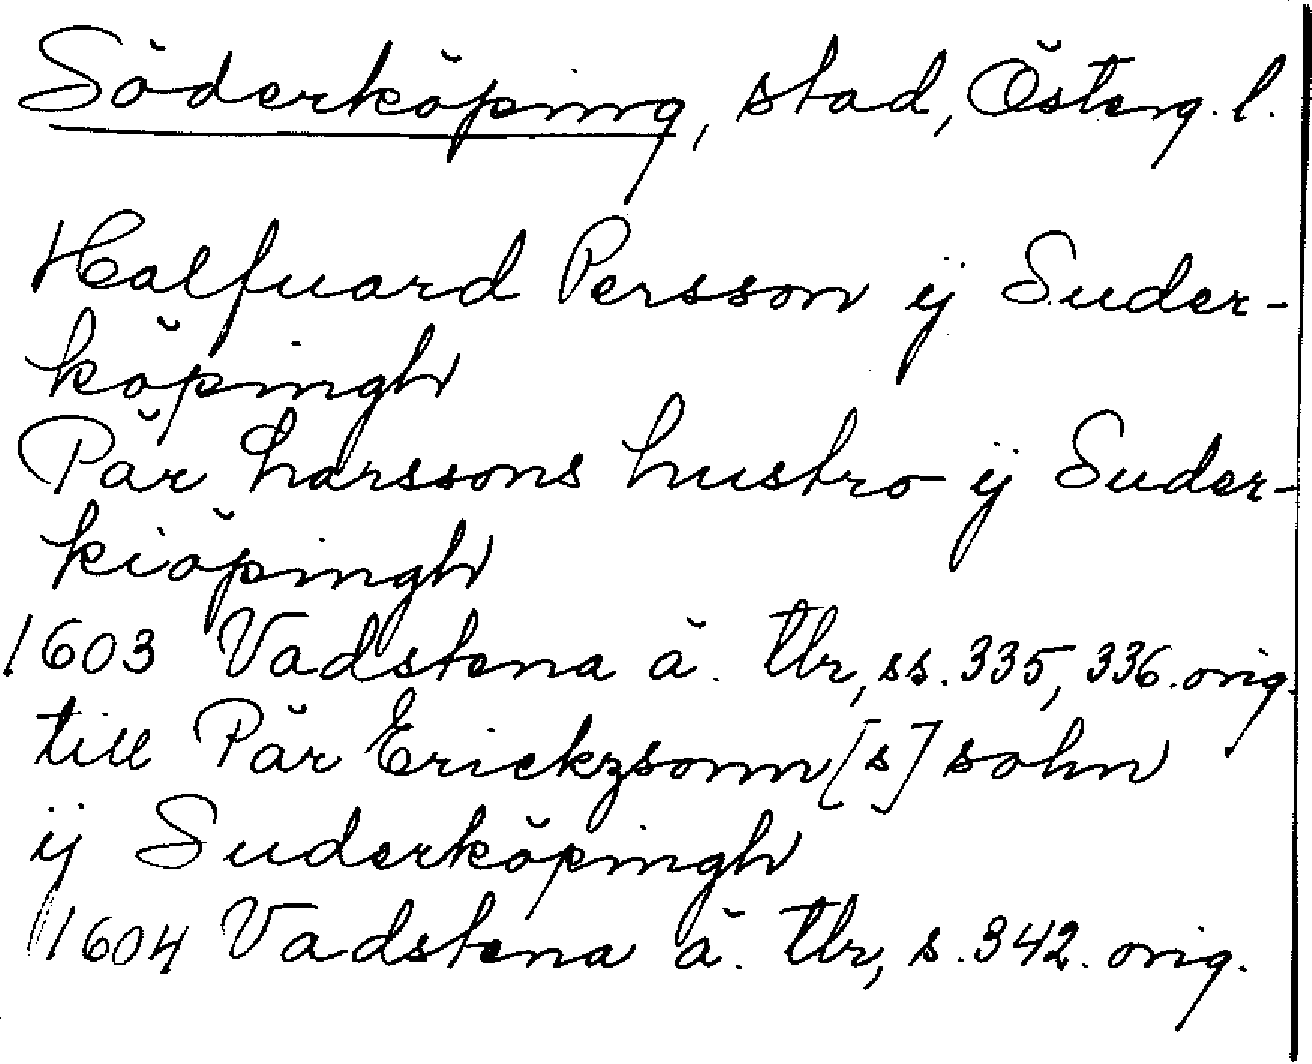 Söderköping, stad, Österg. l.
Halfuard Persson ij Suder-
köpingh
Pär Larssons hustro ij Suder-
kiöpingh
1603 Vadstena ä. tb, ss. 335, 336. orig.
till Pär Erickzsonn[s] sohn
ij Suderköpingh
1604 Vadstena ä. tb, s. 342. orig.